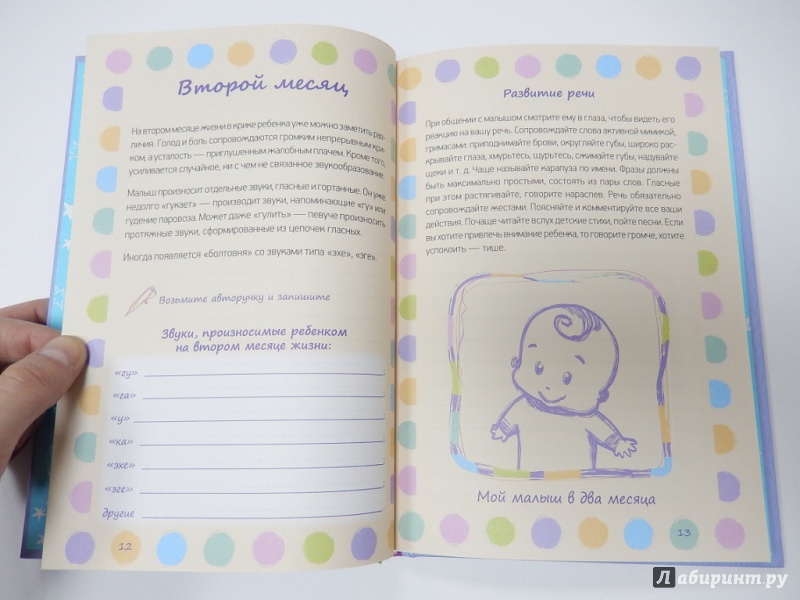 Второй месяц
На втором месяце жизни в крике ребенка уже можно заметить раз-
личия. Голод и боль сопровождаются громким непрерывным кри-
ком, а усталость — приглушенным жалобным плачем. Кроме того,
усиливается случайное, ни с чем не связанное звукообразование.
Малыш произносит отдельные звуки, гласные и гортанные. Он уже
недолго «гукает» — производит звуки, напоминающие «гу» или
гудение паровоза. Может даже «гулить» — певуче произносить
протяжные звуки, сформированные из цепочек гласных.
Иногда появляется «болтовня» со звуками типа «эхе», «эге».
Возьмите авторучку и запишите
Звуки, произносимые ребенком
на втором месяце жизни:
«гу»
«га»
«у»
«ка»
«эхе»
«эге»
другие
12
Развитие речи
При общении с малышом смотрите ему в глаза, чтобы видеть его
реакцию на вашу речь. Сопровождайте слова активной мимикой,
гримасами: приподнимайте брови, округляйте губы, широко рас-
крывайте глаза, хмурьтесь, щурьтесь, сжимайте губы, надувайте
щеки и т. д. Чаще называйте карапуза по имени. Фразы должны
быть максимально простыми, состоять из пары слов. Гласные
при этом растягивайте, говорите нараспев. Речь обязательно
сопровождайте жестами. Поясняйте и комментируйте все ваши
действия. Почаще читайте вслух детские стихи, пойте песни. Если
вы хотите привлечь внимание ребенка, то говорите громче, хотите
успокоить — тише.
Мой малыш в два месяца
13
Лабиринт.ру